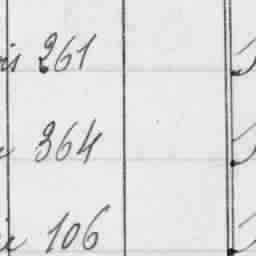 261
364
106